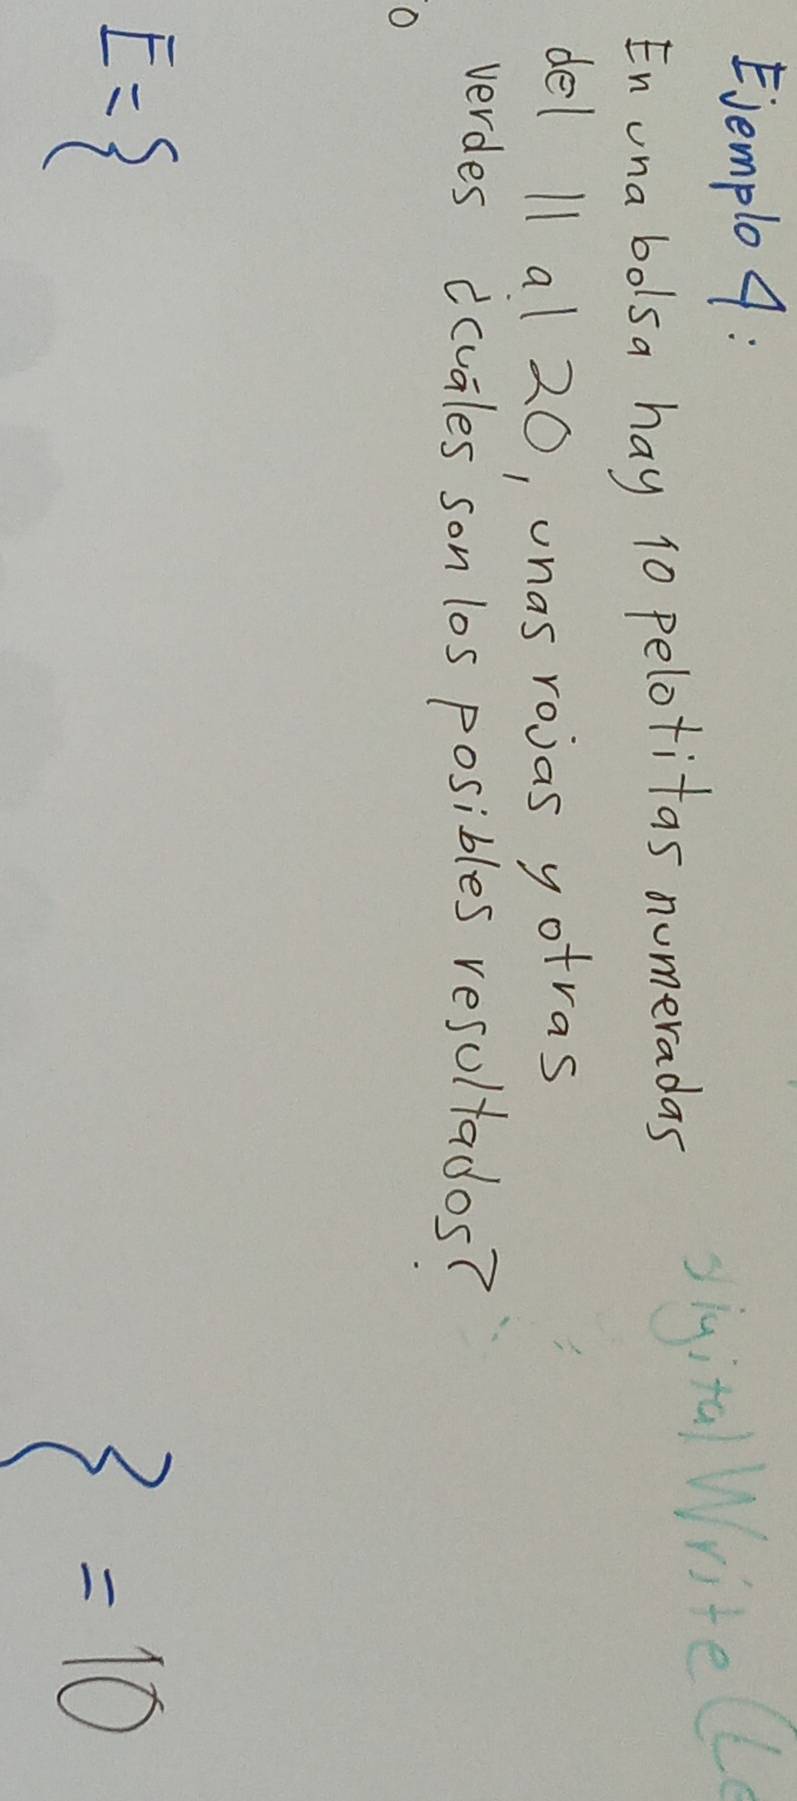 Ejemplo 4:
En una bolsa hay 10 pelotitas numeradas
del 11 al 20, unas rojas y otras
verdes ¿cuáles son los posibles resultados?
E={ } = 10